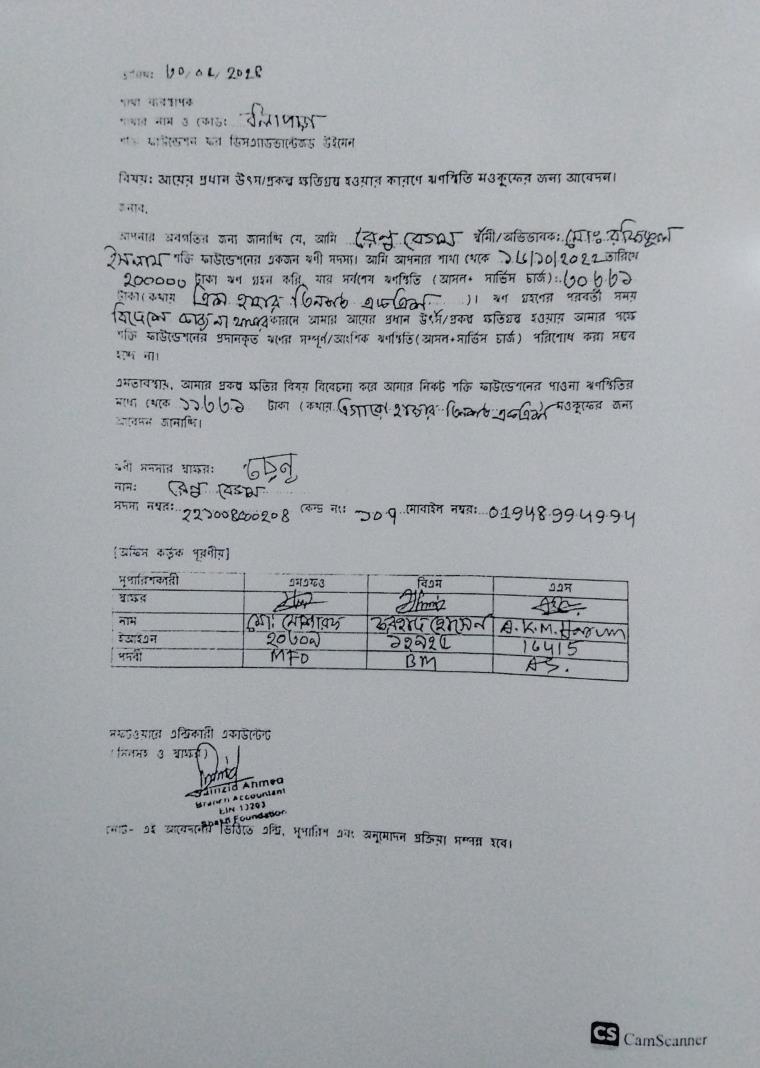 তারিখ: ৩০/০৬/২০২৪
শাখা ব্যবস্থাপক
শাখার নাম ও কোড:
শক্তি ফাউন্ডেশন ফর ডিসএ্যাডভান্টেজড উইমেন
বিষয়: আয়ের প্রধান উৎস/প্রকল্প ক্ষতিগ্রস্ত হওয়ার কারণে ঋণস্থিতি মওকুফের জন্য আবেদন।
জনাব,
আপনার অবগতির জন্য জানাচ্ছি যে, আমি রেনু বেগম স্বামী/অভিভাবক: মোঃ রফিকুল
ইসলাম শক্তি ফাউন্ডেশনের একজন ঋণী সদস্য। আমি আপনার শাখা থেকে ১৬/১০/২০২২ তারিখে
২০০০০০ টাকা ঋণ গ্রহন করি, যার সর্বশেষ ঋণস্থিতি (আসল+ সার্ভিস চার্জ): ৩০৩৩১
টাকা (কথায় ত্রিশ হাজার তিনশত একত্রিশ )। ঋণ গ্রহণের পরবর্তী সময়
বিদেশে কাজ না থাকার কারনে আমার আয়ের প্রধান উৎস/প্রকল্প ক্ষতিগ্রস্ত হওয়ায় আমার পক্ষে
শক্তি ফাউন্ডেশনের প্রদানকৃত ঋণের সম্পূর্ণ/আংশিক ঋণস্থিতি(আসল+সার্ভিস চার্জ) পরিশোধ করা সম্ভব
হচ্ছে না।
এমতাবস্থায়, আমার প্রকল্প ক্ষতির বিষয় বিবেচনা করে আমার নিকট শক্তি ফাউন্ডেশনের পাওনা ঋণস্থিতির
মধ্যে থেকে ১১৩৩১ টাকা (কথায় এগারো হাজার তিনশত একত্রিশ মওকুফের জন্য
আবেদন জানাচ্ছি।
ঋণী সদস্যের স্বাক্ষর: রেনু
নাম: রেনু বেগম
সদস্য নম্বর: ২২১০০৪০০২০৪ কেন্দ্র নং: ১০৭ মোবাইল নম্বর: 01948-994994
[অফিস কর্তৃক পূরণীয়]
সুপারিশকারী এমএফও বিএম এএস
স্বাক্ষর
নাম মো: মোশারফ ফরহাদ হোসেন A.K.M. Harun
ইআইএন ২০৩০৯ ১২৯২৫ 16415
পদবী MFO BM AS.
সফটওয়্যারে এন্ট্রিকারী একাউন্টেন্ট
(সিলসহ ও স্বাক্ষর)
Jamzid Ahmed
Branch Accountant
EIN 13203
Shakti Foundation
নোট- এই আবেদনের ভিত্তিতে এন্ট্রি, সুপারিশ এবং অনুমোদন প্রক্রিয়া সম্পন্ন হবে।
CS CamScanner